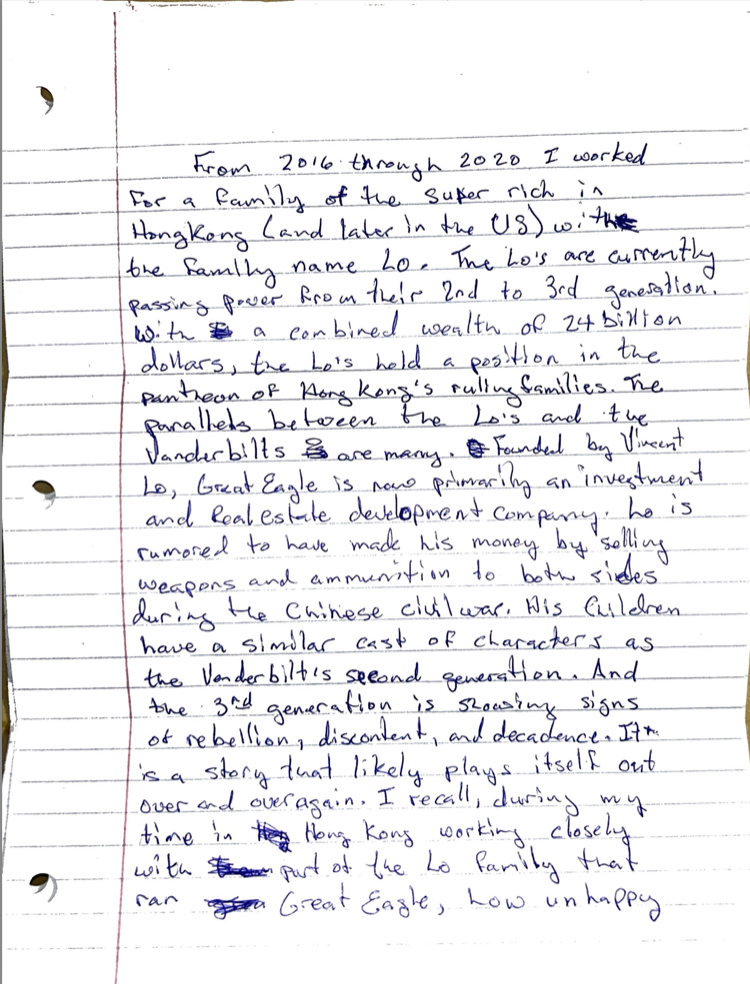 From 2016 through 2020 I worked
for a family of the super rich in
HongKong (and later in the US) with
the family name Lo. The Lo's are currently
passing power from their 2nd to 3rd generation.
With a combined wealth of 24 billion
dollars, the Lo's hold a position in the
pantheon of Hong Kong's ruling families. The
parallels between the Lo's and the
Vanderbilts are many. Founded by Vincent
Lo, Great Eagle is now primarily an investment
and Real estate development company. Lo is
rumored to have made his money by selling
weapons and ammunition to both sides
during the Chinese civil war. His Children
have a similar cast of characters as
the Vanderbilt's second generation. And
the 3rd generation is showing signs
of rebellion, discontent, and decadence. It
is a story that likely plays itself out
over and over again. I recall, during my
time in Hong Kong working closely
with part of the Lo family that
ran Great Eagle, how unhappy